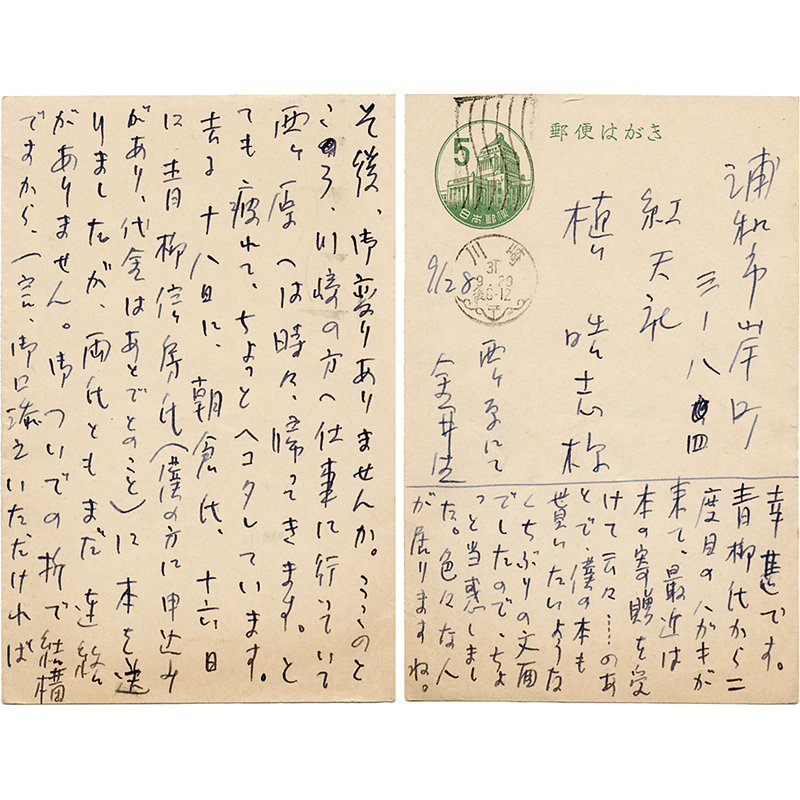 その後、御変りありませんか。ここのと
ころ、川崎の方へ仕事に行っていて
西ヶ原へは時々、帰ってきます。と
ても疲れて、ちょっとヘコタしています。
去る十八日に、朝倉氏、十六日
に青柳信房氏(僕の方に申込み
があり、代金はあとでとのこと)に本を送
りましたが、両氏ともまだ連絡
がありません。御ついでの折で結構
ですから、一言、御口添えいただければ
郵便はがき
5
日本郵便
川崎
31
9.29
后6-12
浦和市岸町
三ー八ノ四
紅天社
植 晧志様
9/28
西ヶ原にて
金井
幸甚です。
青柳氏から二
度目のハガキが
来て、最近は
本の寄贈を受
けて云々……のあ
とで、僕の本も
貰いたいような
くちぶりの文面
でしたので、ちょ
っと当惑しまし
た。色々な人
が居りますね。